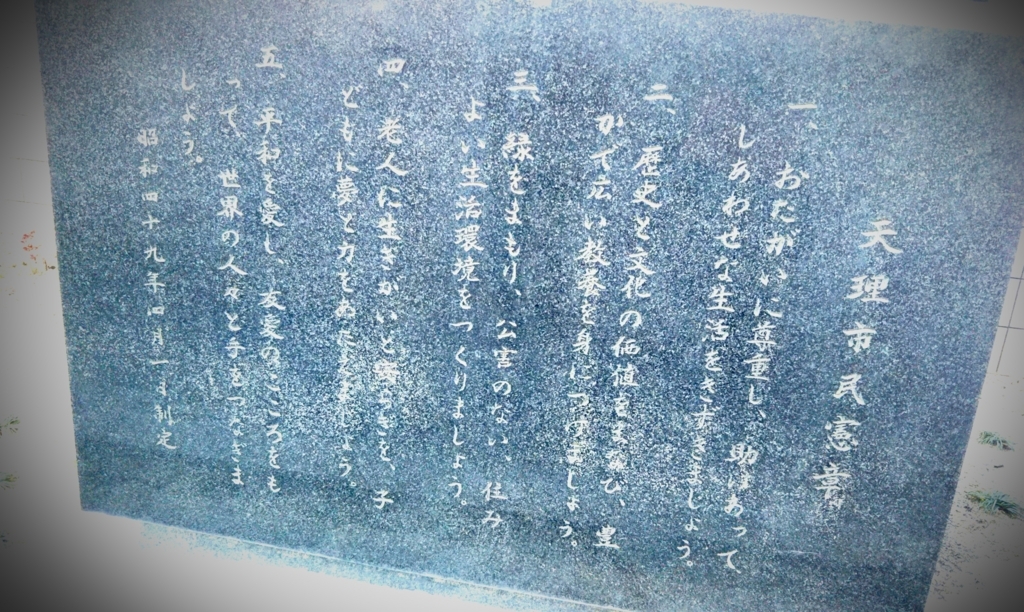 天理市民憲章
一、おたがいに尊重し、助けあって
しあわせな生活をきずきましょう。
二、歴史と文化の価値をまなび、豊
かで広い教養を身につけましょう。
三、緑をまもり、公害のない、住み
よい生活環境をつくりましょう。
四、老人に生きがいと安らぎを、子
どもに夢と力をあたえましょう。
五、平和を愛し、友愛のこころをも
って、世界の人々と手をつなぎま
しょう。
昭和四十九年四月一日制定